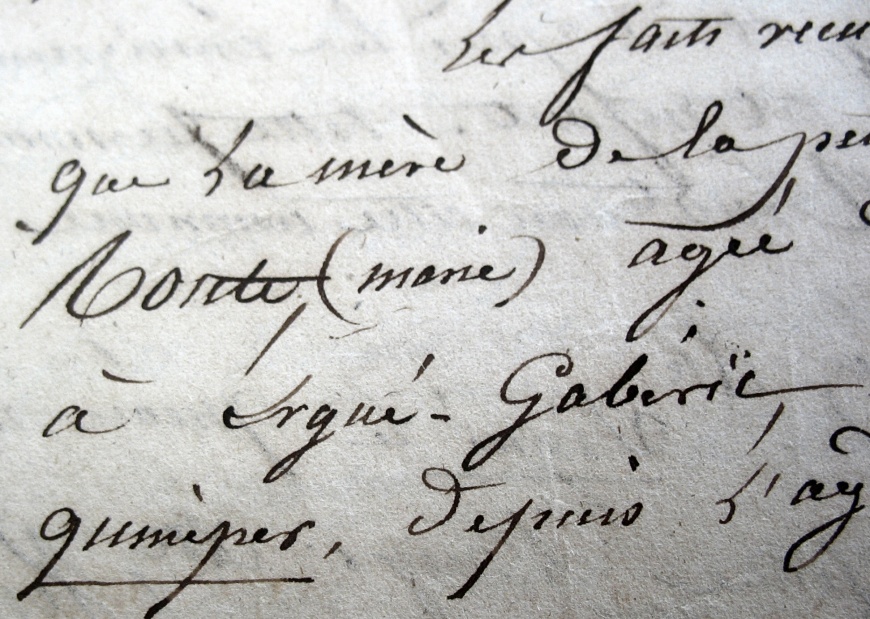 Les faits recu
que La mère De la pe
(marie) agée
à Ergué-Gabéric,
quimper, Depuis L'ag